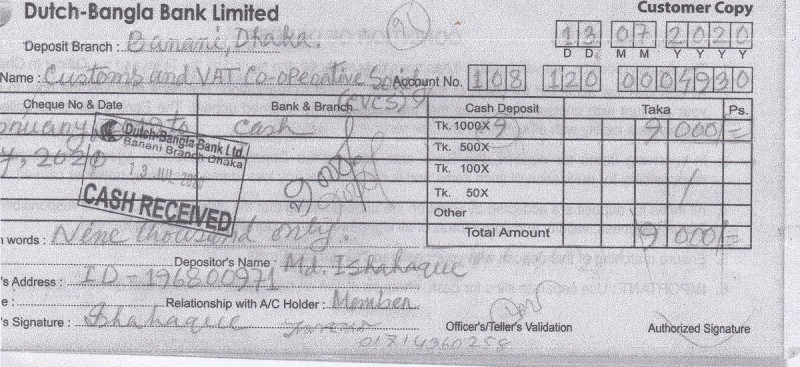 Dutch-Bangla Bank Limited
Customer Copy
Deposit Branch : Banani, Dhaka.
13 07 2020
D D M M Y Y Y Y
Name : Customs and VAT Co-operative
Account No. 108 120 0004930
Cheque No & Date Bank & Branch Cash Deposit Taka Ps.
cash Tk. 1000X 9 9 000/=
Tk. 500X
Tk. 100X
Tk. 50X
Other
Total Amount 9 000/=
Dutch-Bangla Bank Ltd.
Banani Branch Dhaka
13 JUL 2020
CASH RECEIVED
n words : Nine thousand only.
Depositor's Name : Md. Ishahaque
's Address : ID - 196800971
e : Relationship with A/C Holder : Member
's Signature : Ishahaque
Officer's/Teller's Validation
Authorized Signature
01714360258